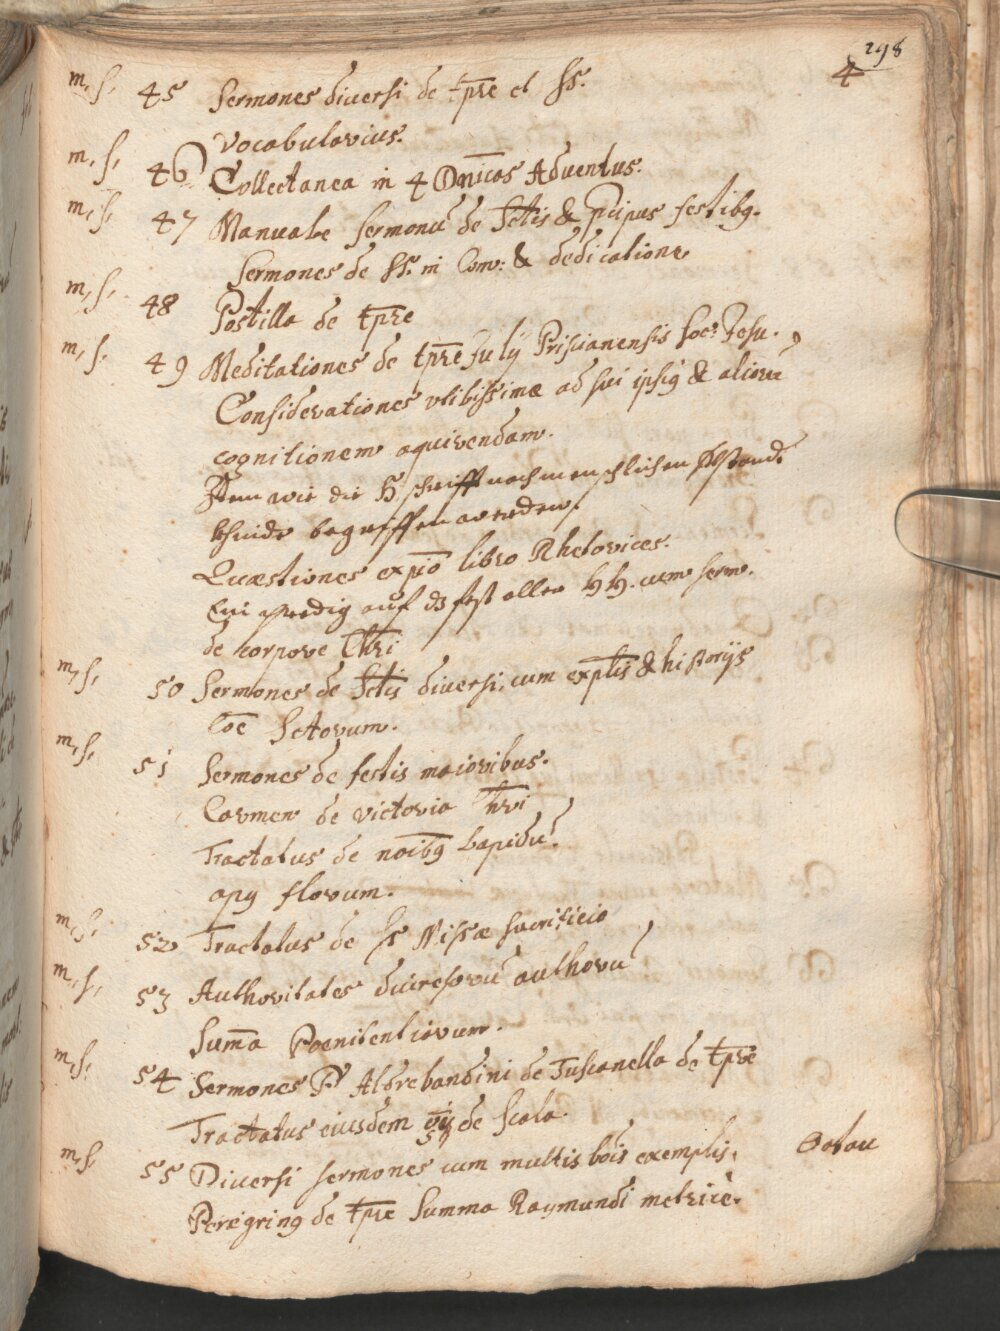 298
4
m. s. 45 Sermones diuersi de tp̄re et SS.
Vocabularius.
m. s. 46 Collectanea in 4 Dn̄icas Aduentus.
m. s. 47 Manuale Sermonū de Sctis & p̄cipus festibꝫ.
Sermones de SS. in Com: & dedicatione
m. s. 48 Postilla de tp̄re
m. s. 49 Meditationes de tp̄re Julÿ Priscianensis Socs Jesu.
Considerationes vtilissimæ ad sui ipsiꝰ & aliorū
cognitionem aquirendam.
Item wie die H. schrifft nach menschlichen
begriffen werden.
Quæstiones ex pīo libro Rhetorices.
Ein predig auf dz fest aller HH. cum serm.
de corpore Chr̄i
m. s. 50 Sermones de Sctis diuersi, cum explīs & historijs
Co͞e Sctorum.
m. s. 51 Sermones de festis maioribus.
Carmen de victoria Chr̄i
Tractatus de noībꝫ Lapidū.
apꝰ florum.
m. s. 52 Tractatus de SS Missæ sacrificio
m. s. 53 Authoritates diuersorū authorū
Sum̄a Poenitentiorum.
m. s. 54 Sermones P. Aldrebandini de Tuscanella de tp̄re
Tractatus eiusdem de Scala.
m. s. 55 Diuersi sermones cum multis bo͞is exemplis. Octau
Peregrinꝰ de tp̄re Summa Raymundi metricè.